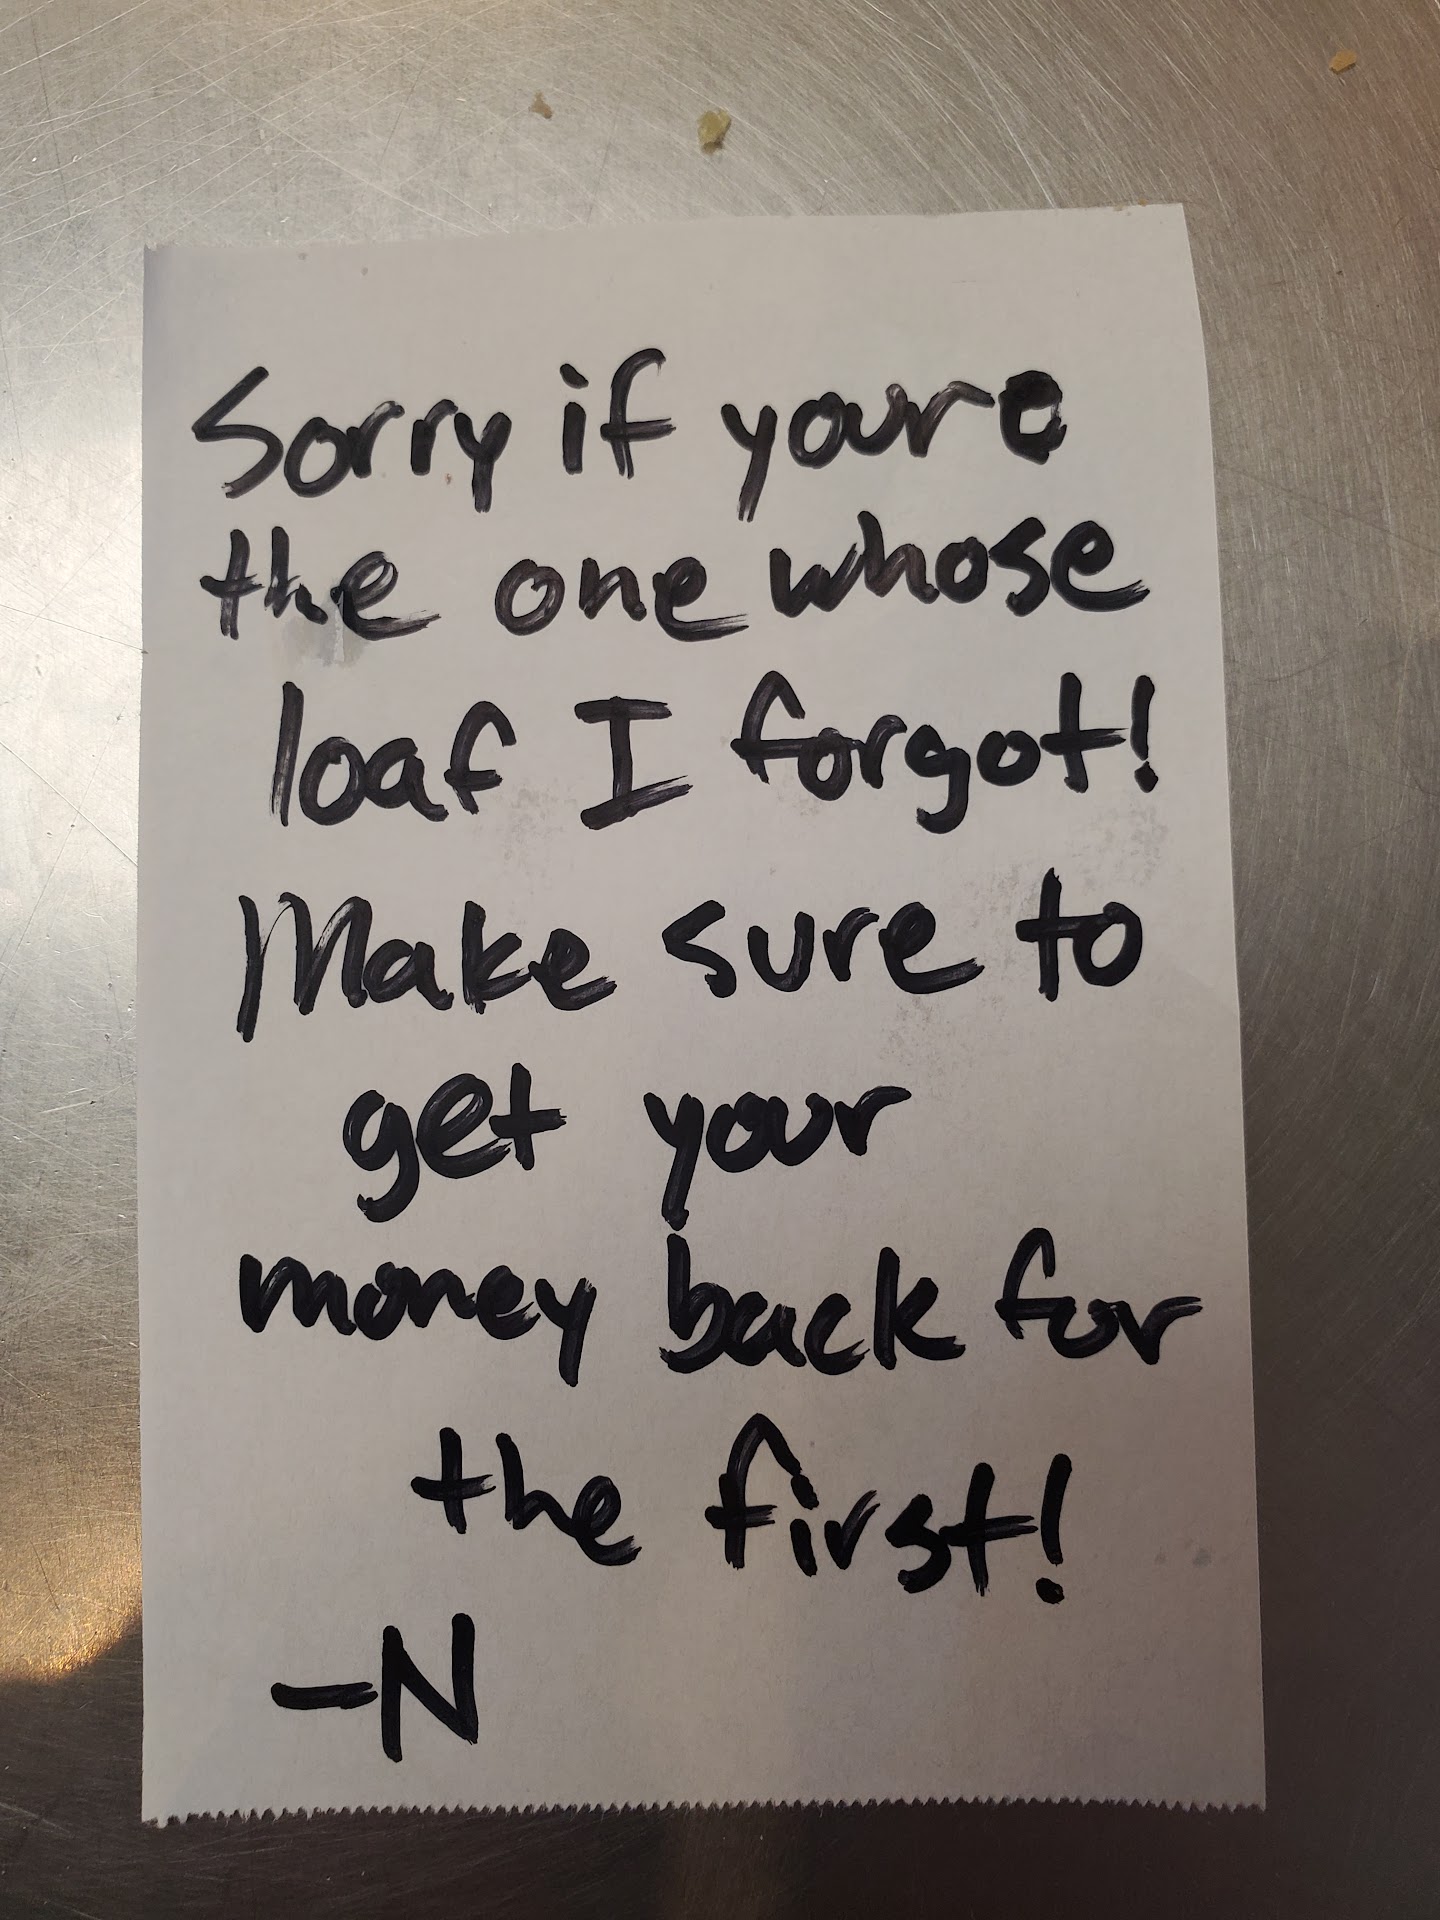 Sorry if youre
the one whose
loaf I forgot!
Make sure to
get your
money back for
the first!
-N